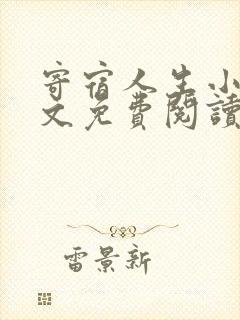 寄宿人生小
文免費閱讀
雷景新